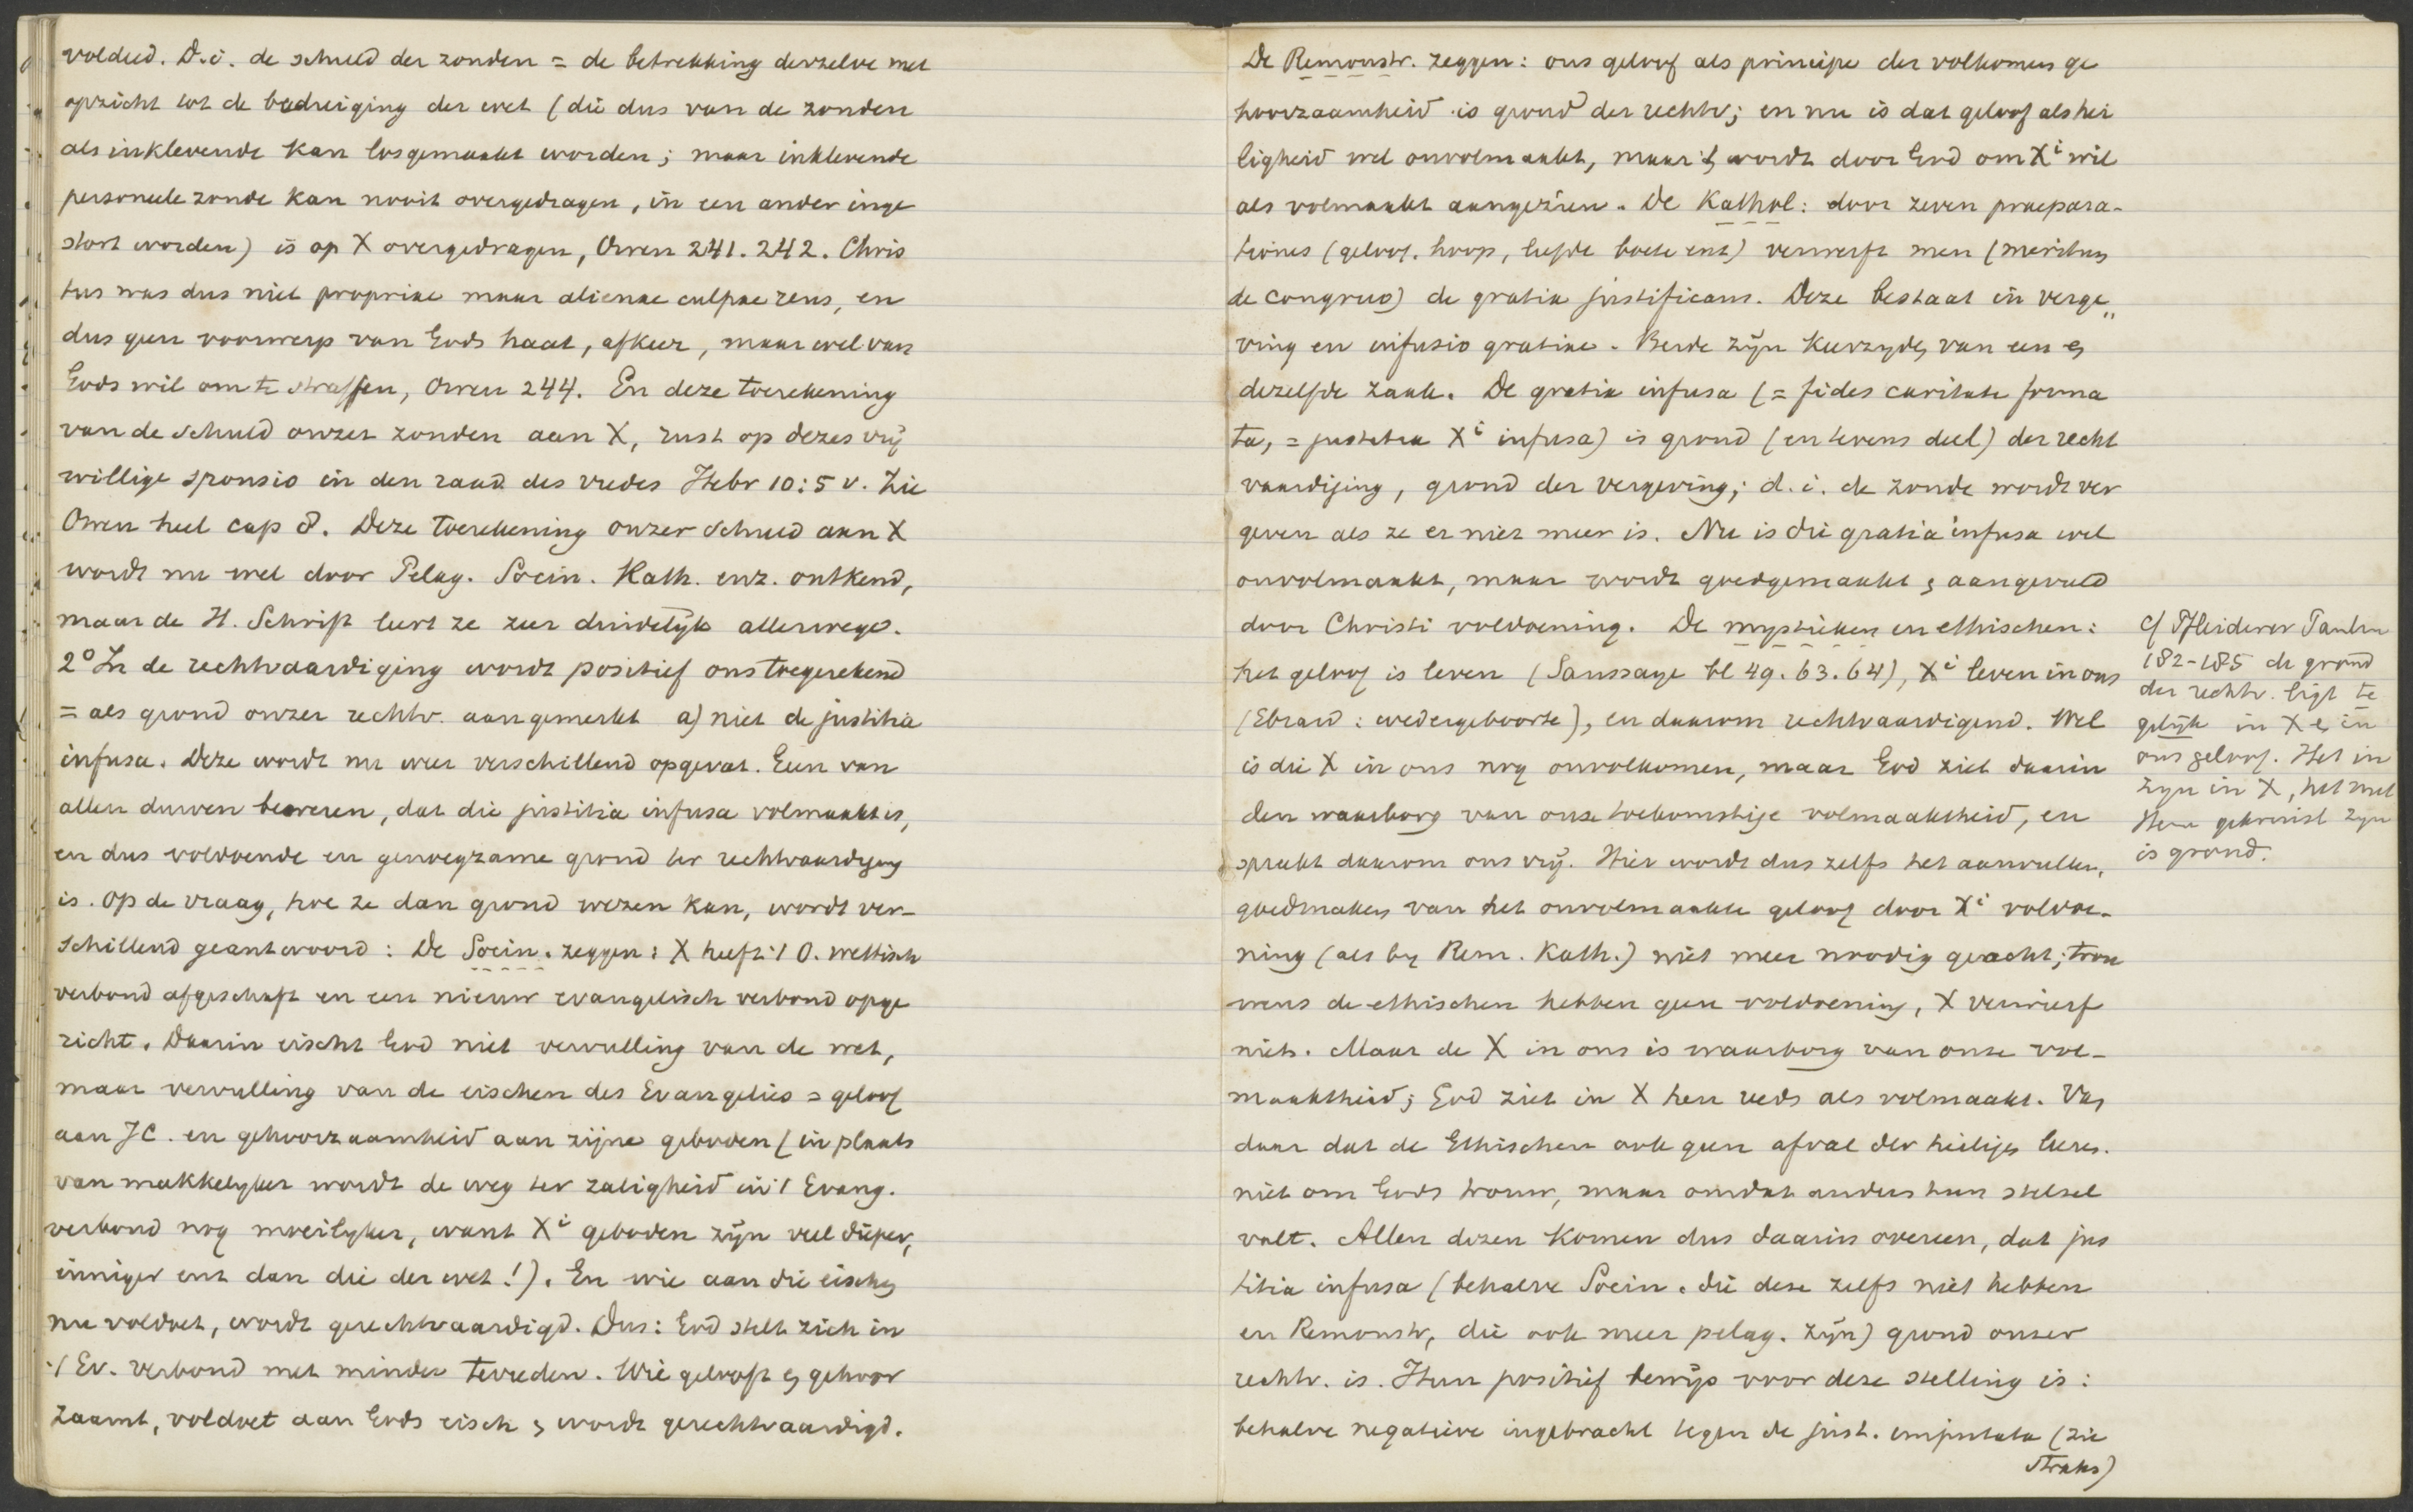 voldeed. D.i. de schuld der zonden = de betrekking derzelve met
opzicht tot de bedreiging der wet (die dus van de zonden
als inklevende kan losgemaakt worden; maar inklevende
personeele zonde kan nooit overgedragen, in een ander inge
stort worden) is op X overgedragen, Owen 241. 242. Chris
tus was dus niet propriae maar alienae culpae reus, en
dus geen voorwerp van Gods haat, afkeer, maar wel van
Gods wil om te straffen, Owen 244. En deze toerekening
van de schuld onzer zonden aan X, rust op dezes vrij
willige sponsio in den raad des vredes Hebr 10:5 v. Zie
Owen heel cap 8. Deze toerekening onzer schuld aan X
wordt nu wel door Pelag. Socin. Kath. enz. ontkend,
maar de H. Schrift leert ze zeer duidelijk allerwege.
2° In de rechtvaardiging wordt positief ons toegerekend
= als grond onzer rechtv. aangemerkt a) niet de justitia
infusa. Deze wordt nu weer verschillend opgevat. Geen van
allen durven beweren, dat die justitia infusa volmaakt is,
en dus voldoende en genoegzame grond ter rechtvaardiging
is. Op de vraag, hoe ze dan grond wezen kan, wordt ver-
schillend geantwoord: De Socin. zeggen: X heeft 't O. wettisch
verbond afgeschaft en een nieuw evangelisch verbond opge
richt. Daarin eischt God niet vervulling van de wet,
maar vervulling van de eischen des Evangelies = geloof
aan JC. en gehoorzaamheid aan zijne geboden (in plaats
van makkelyker wordt de weg ter zaligheid in 't Evang.
verbond nog moeilyker, want Xi geboden zijn veel dieper,
inniger ent dan die der wet!). En wie aan die eischen
nu voldoet, wordt gerechtvaardigd. Dus: God stelt zich in
't Ev. verbond met minder tevreden. Wie gelooft en gehoor
zaamt, voldoet aan Gods eisch en wordt gerechtvaardigd.
De Remonstr. zeggen: ons geloof als principe der volkomen ge
hoorzaamheid is grond der rechtv; en nu is dat geloof als hei
ligheid wel onvolmaakt, maar 't wordt door God om Xi wil
als volmaakt aangezien. De Kathol: door zeven praepara-
tiones (geloof. hoop, liefde boete ent) verwerft men (meritum
de congruo) de gratia justificans. Deze bestaat in verge„
ving en infusio gratiae. Beide zijn keerzyden van een en
dezelfde zaak. De gratia infusa (= fides caritate forma
ta, = justitia Xi infusa) is grond (en tevens deel) der recht
vaardiging, grond der vergeving; d.i. de zonde wordt ver
geven als ze er niet meer is. Nu is die gratia infusa wel
onvolmaakt, maar wordt goedgemaakt en aangevuld
door Christi voldoening. De mystieken en ethischen:
het geloof is leven (Saussaye bl 49. 63. 64), Xi leven in ons
(Ebrard: wedergeboorte), en daarom rechtvaardigend. Wel
is die X in ons nog onvolkomen, maar God ziet daarin
den waarborg van onze toekomstige volmaaktheid, en
spreekt daarom ons vrij. Hier wordt dus zelfs het aanvullen,
goedmaken van het onvolmaakte geloof door Xi voldoe-
ning (als by Rem. Kath.) niet meer noodig geacht; trou
wens de ethischen hebben geen voldoening, X verwierf
niets. Maar de X in ons is waarborg van onze vol-
maaktheid; God ziet in X hen reeds als volmaakt. Van
daar dat de Ethischen ook geen afval der heiligen leeren.
niet om Gods trouw, maar omdat anders hun stelsel
valt. Allen dezen komen dus daarin overeen, dat jus
titia infusa (behalve Socin. die deze zelfs niet hebben
en Remonstr, die ook meer pelag. zijn) grond onzer
rechtv. is. Hun positief bewijs voor deze stelling is:
behalve negatieve ingebracht tegen de just. imputata (zie
straks)
cf Pfleiderer Paulin
182-185 de grond
der rechtv. ligt te
gelijk in X en in
ons geloof. Het in
zyn in X, het met
Hem gekruist zyn
is grond.